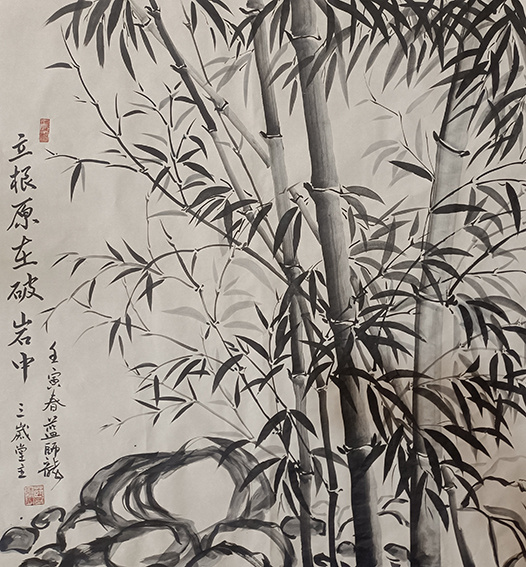 立根原在破岩中
壬寅春蓝师龙
三崴堂主